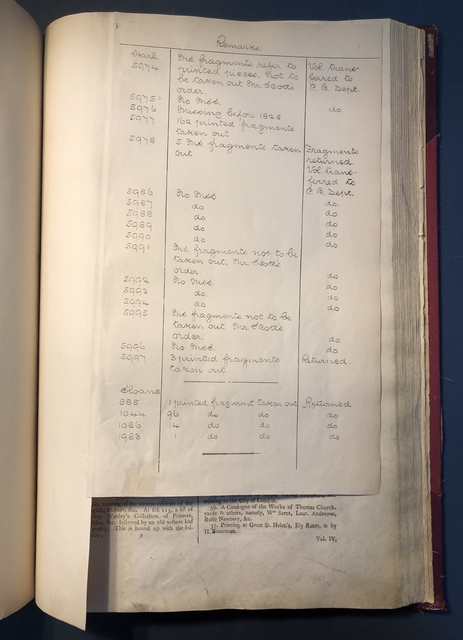 Remarks
Harl.
5974 Ms. fragments refer to Vol. trans-
printed pieces. Not to ferred to
be taken out Mr. Scott's P. B. Dept.
order.
5975 No Mss. do
5976 Missing before 1826
5977 162 printed fragments
taken out
5978 5 Ms. fragments taken Fragments
out returned.
Vol. trans-
ferred to
P. B. Dept.
5986 No Mss. do.
5987 do do.
5988 do do
5989 do do
5990 do do
5991 Ms. fragments not to be
taken out. Mr. Scott's
order. do
5992 No Mss. do.
5993 do. do.
5994 do. do.
5995 Ms. fragments not to be
taken out Mr. Scott's
order. do.
5996 No Mss. do
5997 3 printed fragments Returned.
taken out
Sloane
885 1 printed fragment taken out Returned
1044 96 do do do
1086 14 do do do
1983 1 do do do
&c. followed by an old vellum leaf
This is bound up with the
36. A Catalogue of the Works of Thomas Church-
yarde & others, namely, Wm Seres, Laur. Andrewe,
Rafe Newbery, &c.
37. Printing at Great St. Helen's, Ely Rents, &c by
Vol. IV.